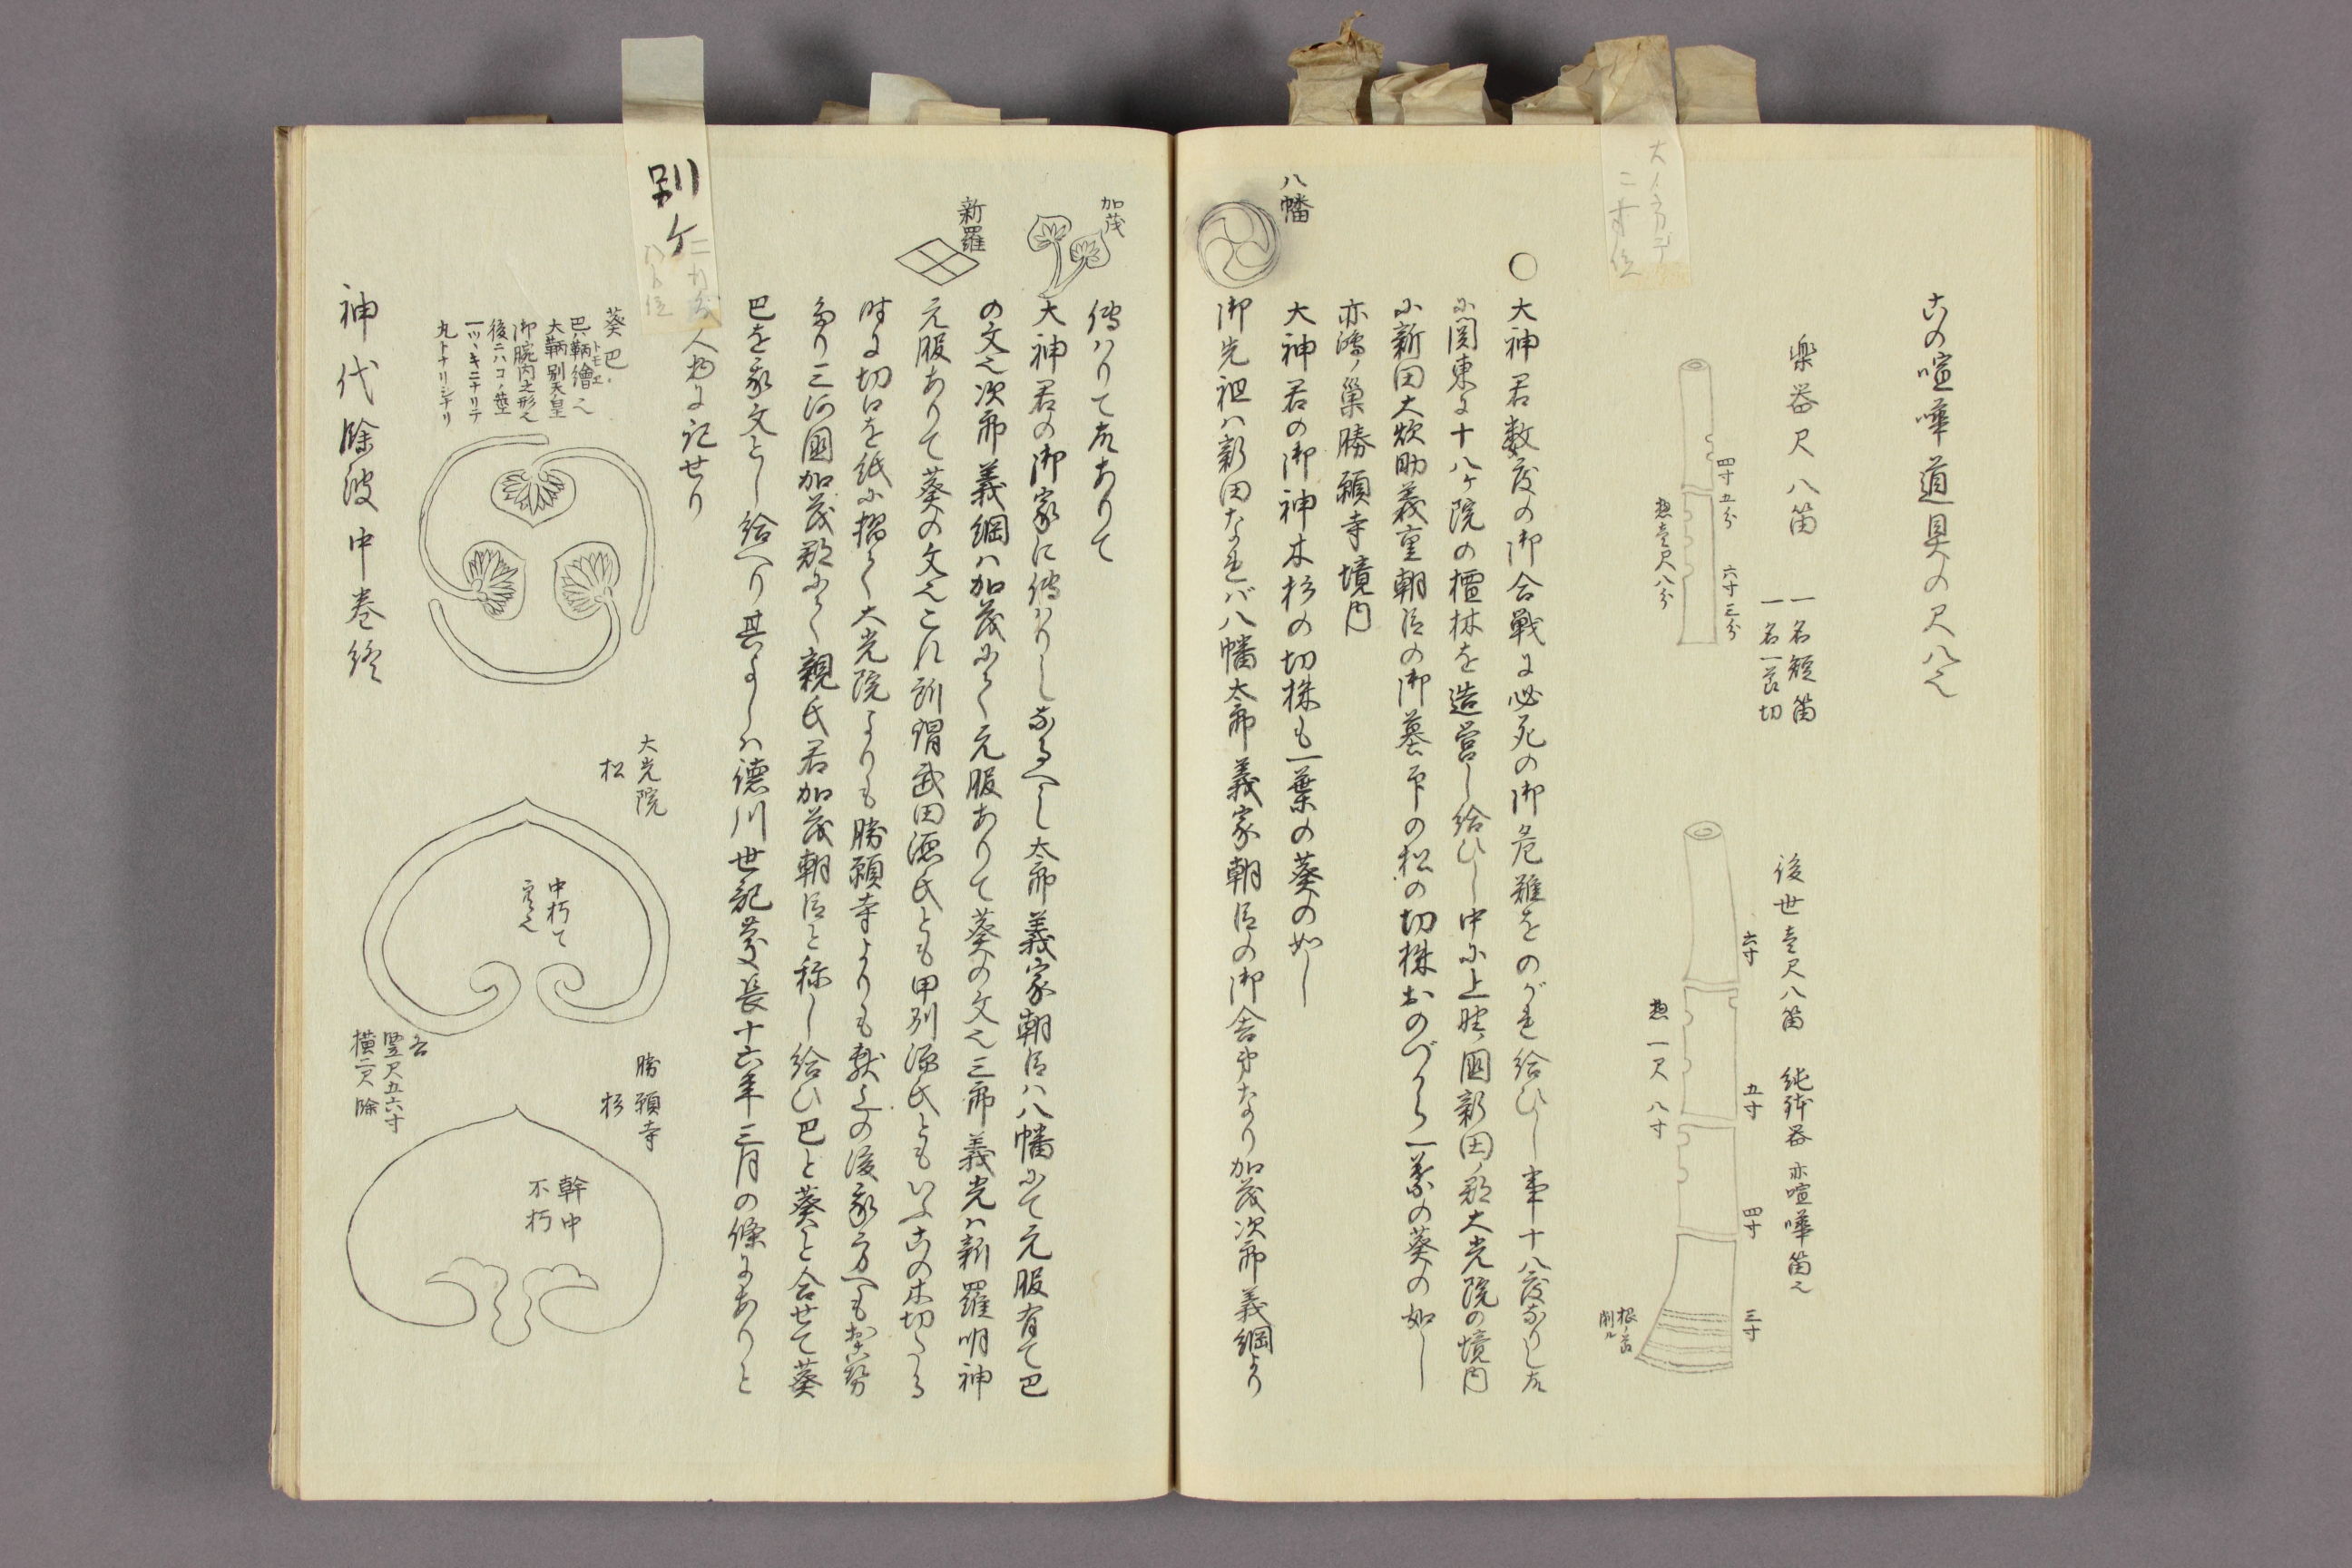 古の喧嘩道具の尺八也
楽器尺八笛
一名短笛
一名一節切
四寸五分
六寸三分
惣壹尺八分
後世壹尺八笛
純林器 亦喧嘩笛也
六寸
五寸
四寸
三寸
惣一尺八寸
根ノ節
削ル
二寸位
〇大神君数度の御合戦に必死の御危難をのがれ給ひし事十八度なりし故
に関東に十八ヶ院の檀林を造営し給ひし中に上野國新田ノ郡大光院の境内
に新田大炊助義重朝臣の御墓印の松の切株おのづから一葉の葵の如し
亦鴻ノ巣勝願寺境内
大神君の御神木杉の切株も一葉の葵の如し
八幡
御先祖ハ新田なれバ八幡太郎義家朝臣の御舎弟なり加茂次郎義綱より
傳ハりて故ありて
加茂
大神君の御家に傳ハりしなるへし太郎義家朝臣ハ八幡にて元服有て巴
の文也次郎義綱ハ加茂にて元服ありて葵の文也三郎義光ハ新羅明神
新羅
元服ありて菱の文也これ所謂武田源氏とも甲州源氏ともいふ古の木切たる
時に切口を紙に摺て大光院よりも勝願寺よりも献之の後家方へも
なり三河國加茂郡にて親氏君加茂朝臣と称し給ひ巴と葵と合せて葵
巴を家文とし給へり其よしハ徳川世記慶長十六年三月の條にありと
人物に記せり
別ケ
葵巴
巴ハ鞆繪也
トモエ
大鞆別天皇
御腕肉之形也
後ニハコノ莖
一ツヽキニナリテ
丸トナリシナリ
大光院
松
中朽て
竪尺五六寸
横二尺餘
勝願寺
杉
幹中
不朽
神代餘波中巻終